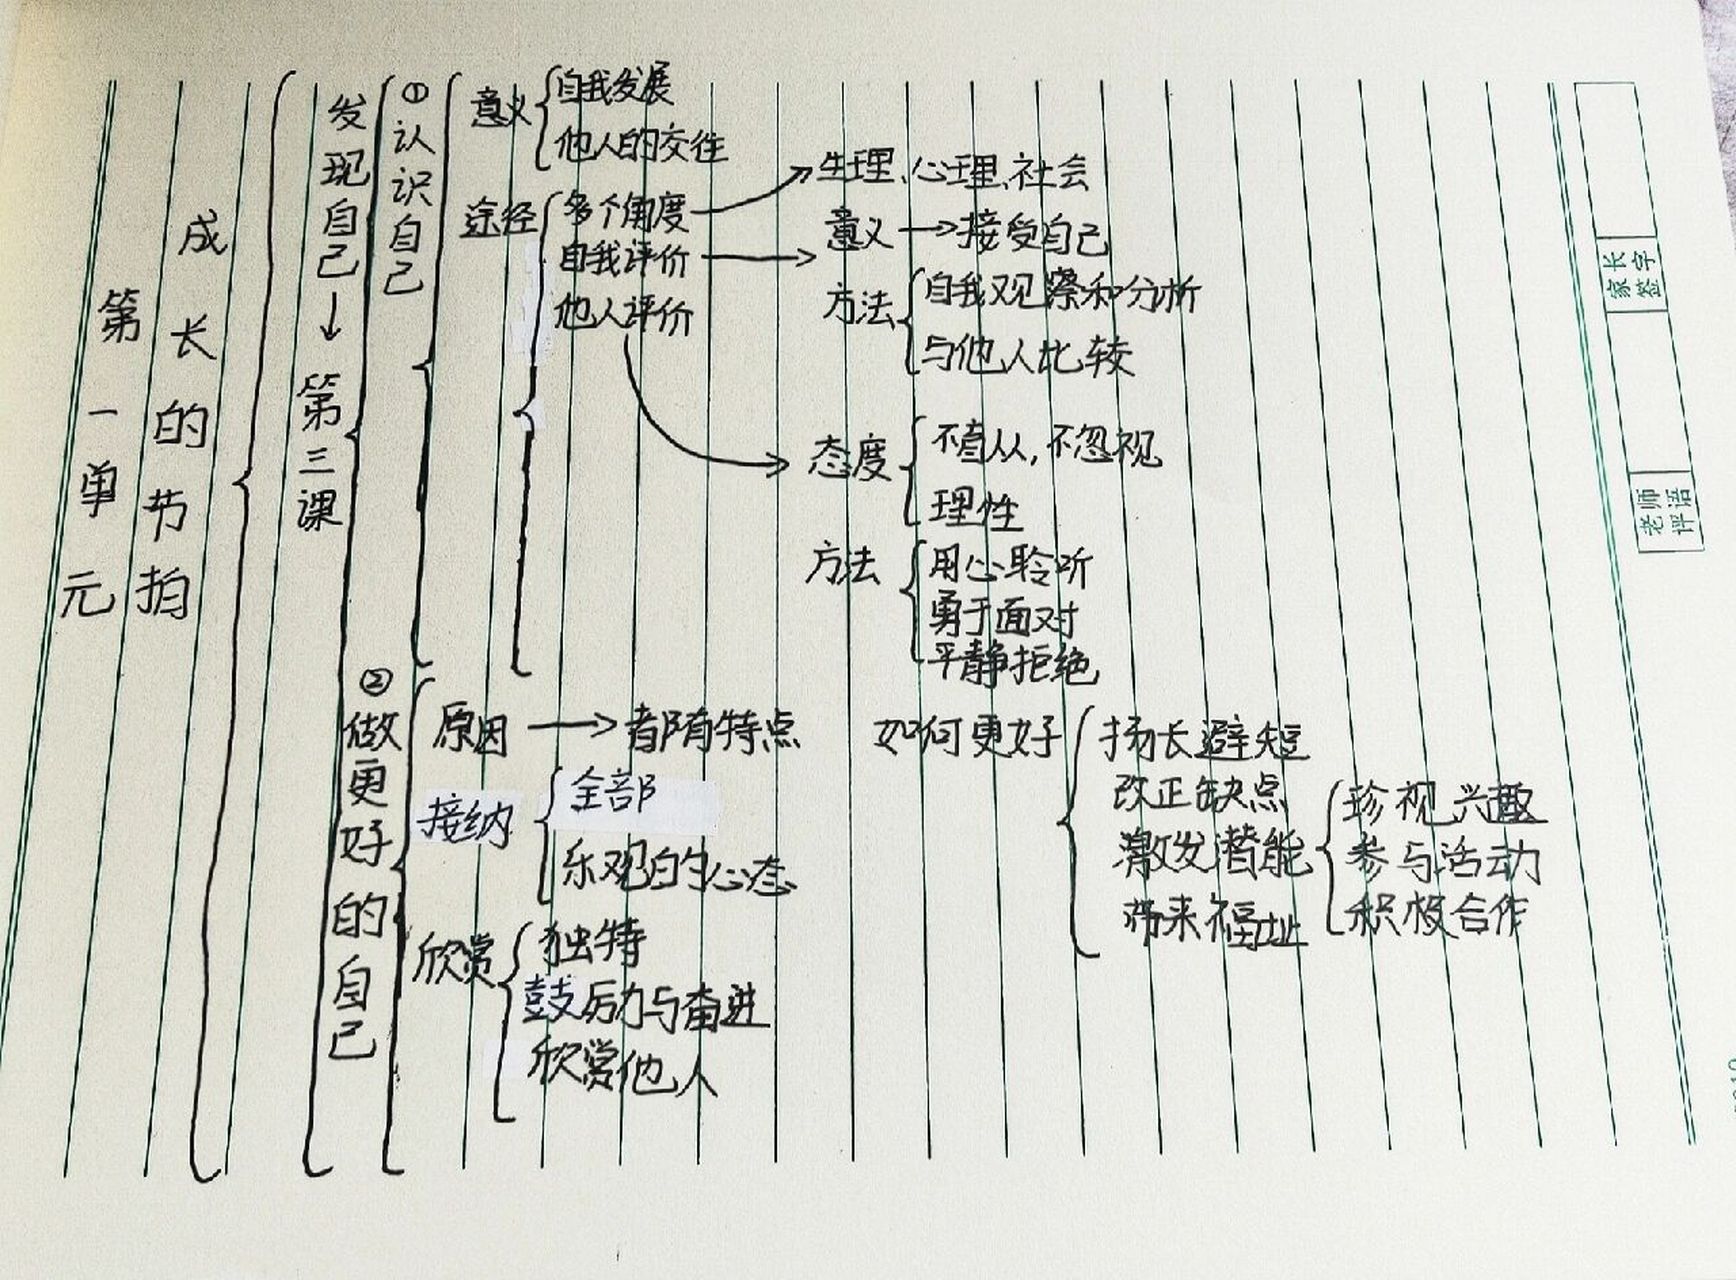 第一单元
成长的节拍
发现自己→第三课
①认识自己
意义
自我发展
他人的交往
途径
多个角度
生理、心理、社会
自我评价
意义→接受自己
方法
自我观察和分析
与他人比较
他人评价
态度
不盲从,不忽视
理性
方法
用心聆听
勇于面对
平静拒绝
②做更好的自己
原因→都有特点
接纳
全部
乐观的心态
欣赏
独特
鼓励与奋进
欣赏他人
如何更好
扬长避短
改正缺点
激发潜能
珍视兴趣
参与活动
积极合作
带来福址
家长签字
老师评语